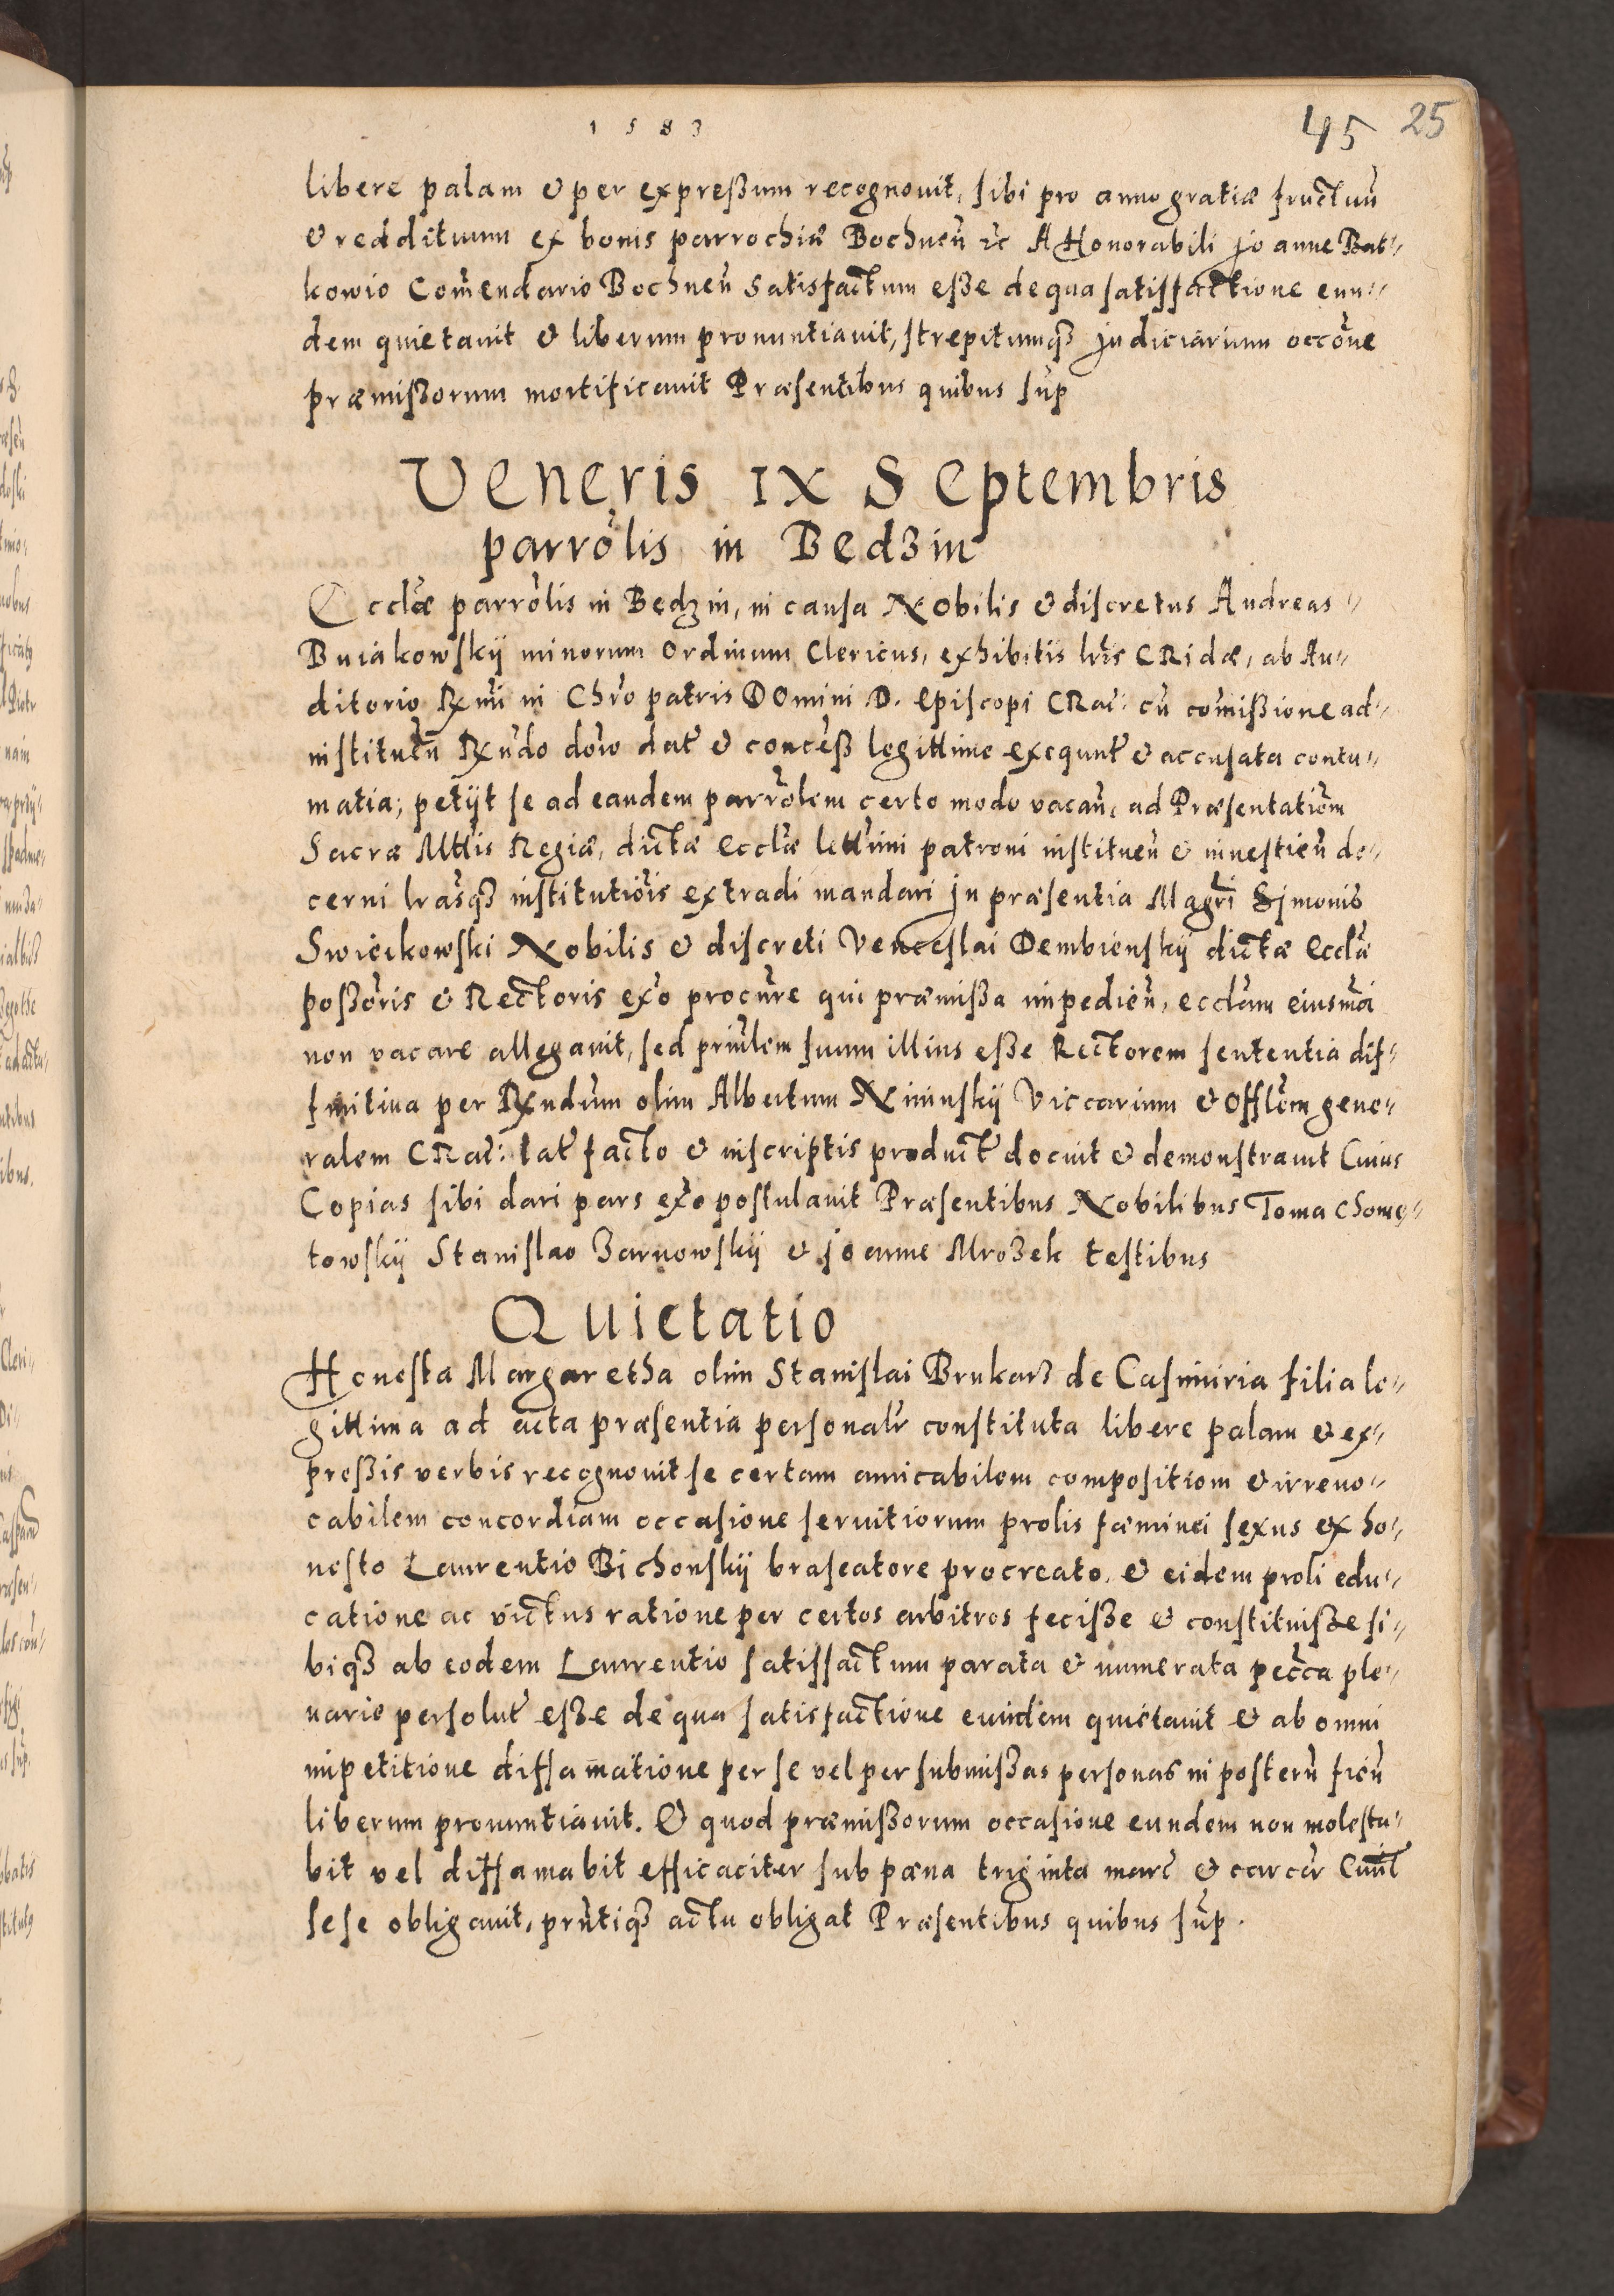 1583
45 25
libere palam & per expreßum recognouit, sibi pro anno gratiæ fructuũ
& reddituum ex bonis parrochiæ Bochneñ ꝛc A Honorabili Joanne Bat„
kowio Com̃endario Bochneñ satisfactum eße de qua satisfactione eun„
dem quietauit & liberum pronuntiauit, strepitumqꝫ judiciarium occõne
præmißorum mortificauit Præsentibus quibus sup̃
Veneris IX Septembris
parrõlis in Bedzin
Ecclæ̃ parrõlis in Będzin, in causa Nobilis & discretus Andreas„
Buiakowskij minorum Ordinum Clericus, exhibitis lr̃is CRidæ, ab Au„
ditorio Rx̃mi in Chr̃o patris Domini D. Episcopi CRac̃: cũ com̃ißione ad„
institutũ Rx̃ndo dom̃o dat̃ & conceß̃ legittime exequut̃ & accusata contu„
matia; petijt se ad eandem parrõlem certo modo vacañ, ad Præsentatiõm
Sacræ Mttis Regiæ, dictæ Ecclæ̃ lettĩmi patroni institueñ & inuestieñ de„
cerni lr̃asqꝫ institutiõis extradi mandari in præsentia Magr̃i Simonis
Swieikowski Nobilis & discreti Venceslai Dembienskij dictæ Ecclæ̃
poßõris & Rectoris ex̃o procur̃e qui præmißa impedieñ, ecclãm eiusmõi
non vacare allegauit, sed prin̄lem suum illius eße Rectorem sententia dif„
finitiua per Rx̃ndum olim Albertum Nininskij Viccarium & Offlẽm gene„
ralem CRac̃: lat̃ facto & inscriptis product̃ docuit & demonstrauit Cuius
Copias sibi dari pars ex̃o postulauit Præsentibus Nobilibus Toma Chome„
towskij Stanislao Zarnowskij & joanne Mrozek testibus
Quietatio
Honesta Margaretha olim Stanislai Brukarz de Casimiria filia le„
gittima ad acta præsentia personalr̃ constituta libere palam & ex„
preßis verbis recognouit se certam amicabilem compositiom & irreuo„
cabilem concordiam occasione seruitiorum prolis fæminei sexus ex ho„
nesto Laurentio Bichonskij braseatore procreato, & eidem proli edu„
catione ac victus ratione per certos arbitros feciße & constituiße si„
biqꝫ ab eodem Laurentio satisfactum parata & numerata pecc̃a ple„
narie persolut̃ eße de qua satisfactione eundem quietauit & ab omni
impetitione diffamatione per se vel per submißas personas in posterũ fieñ
liberum pronuntiauit. & quod præmißorum occasione eundem non molesta„
bit vel diffamabit efficaciter sub pæna triginta marc̃ & carcer̃ Ciuil̃
sese obligauit, prñtiqꝫ actu obligat Præsentibus quibus sup̃.